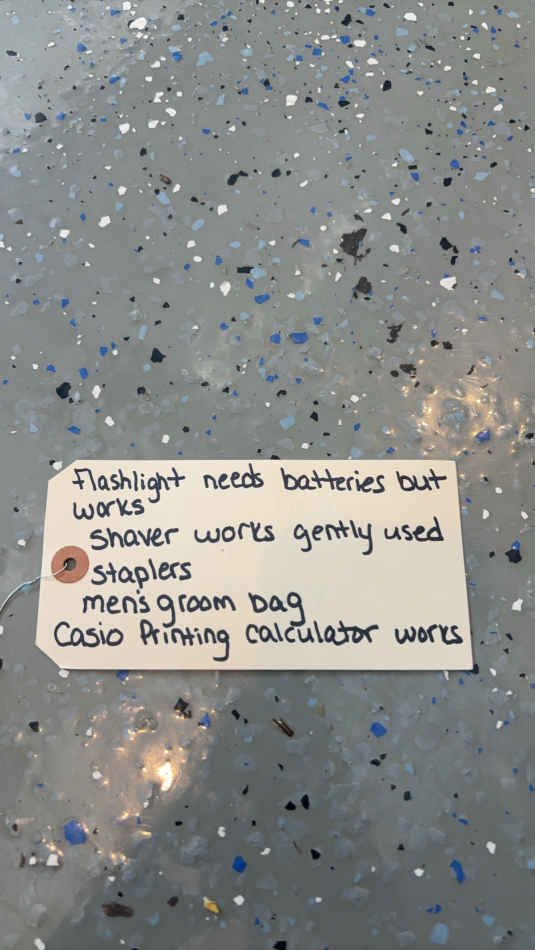 Flashlight needs batteries but
works
Shaver works gently used
Staplers
men's groom bag
Casio Printing Calculator works